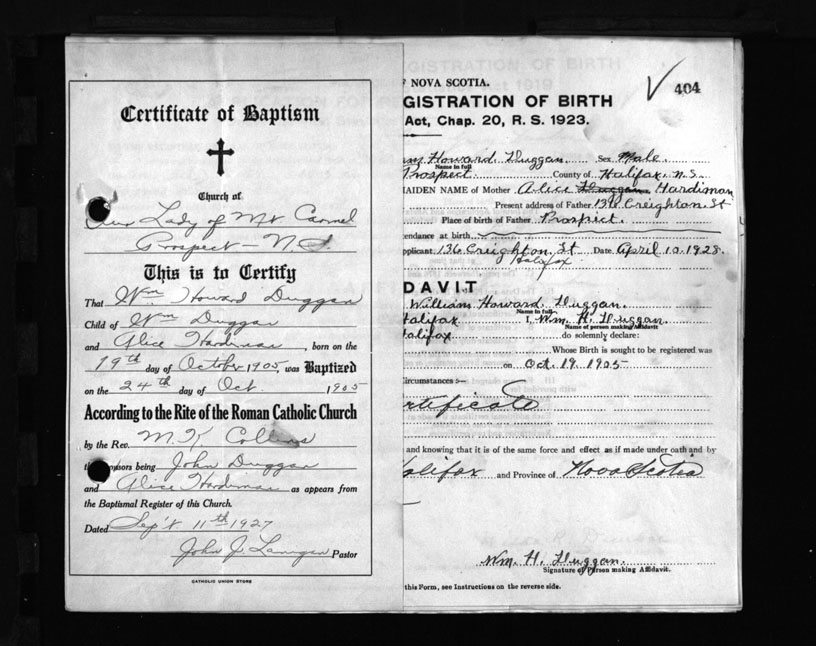 Certificate of Baptism
Church of
Our Lady of Mt Carmel
Prospect - N.S.
This is to Certify
That Wm Howard Duggan
Child of Wm Duggan
and Alice Hardiman, born on the
19th day of October 1905, was Baptized
on the 24th day of Oct. 1905
According to the Rite of the Roman Catholic Church
by the Rev. M. K Collins
the sponsors being John Duggan
and Alice Hardiman as appears from
the Baptismal Register of this Church.
Dated Sep't 11th 1927
John J. Pastor
CATHOLIC UNION STORE
404
F NOVA SCOTIA.
GISTRATION OF BIRTH
Act, Chap. 20, R. S. 1923.
am Howard Duggan. Sex Male.
Name in full
Prospect County of Halifax, N.S.
MAIDEN NAME of Mother Alice Duggan Hardiman
Present address of Father 136 Creighton St
Place of birth of Father Prospect.
tendance at birth
pplicant 136 Creighton St Date April 10. 1928.
Halifax
DAVIT
William Howard Duggan.
Name in full
Halifax I, Wm. H. Duggan.
Name of person making Affidavit
Halifax do solemnly declare:
Whose Birth is sought to be registered was
on Oct. 19. 1905
ircumstances :—
ertificate
and knowing that it is of the same force and effect as if made under oath and by
Halifax and Province of Nova Scotia
Wm. H. Duggan.
Signature of Person making Affidavit.
this Form, see Instructions on the reverse side.